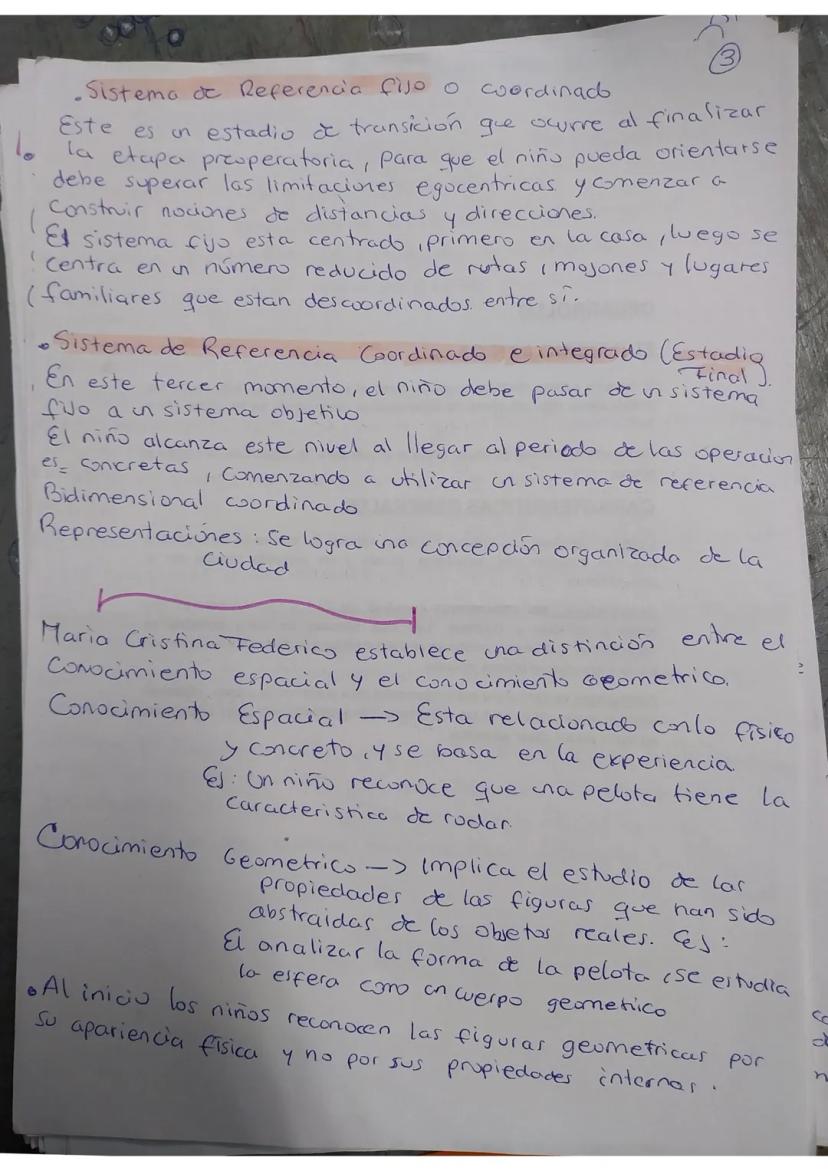 3
. Sistema de Referencia fijo o coordinado
Este es un estadio de transición que ocurre al finalizar
la etapa preoperatoria, para que el niño pueda orientarse
debe superar las limitaciones egocentricas y comenzar a
construir nociones de distancias y direcciones.
El sistema fijo esta centrado, primero en la casa, luego se
centra en un número reducido de rutas, mojones y lugares
familiares que estan descoordinados entre sí.
• Sistema de Referencia Coordinado e integrado (Estadio
Final).
En este tercer momento, el niño debe pasar de un sistema
fijo a un sistema objetivo
El niño alcanza este nivel al llegar al periodo de las operacion
es= concretas, comenzando a utilizar un sistema de referencia
Bidimensional coordinado
Representaciones: Se logra una concepción organizada de la
ciudad
Maria Cristina Federico establece una distinción entre el
Conocimiento espacial y el conocimiento Geometrico.
Conocimiento Espacial → Esta relacionado con lo físico
y concreto, y se basa en la experiencia
Ej: Un niño reconoce que una pelota tiene la
caracteristica de rodar.
Conocimiento Geometrico → Implica el estudio de las
propiedades de las figuras que han sido
abstraidas de los objetos reales. Ej:
El analizar la forma de la pelota, se estudia
la esfera como un cuerpo geometrico
• Al inicio los niños reconocen las figuras geometricas por
su apariencia física y no por sus propiedades internas.